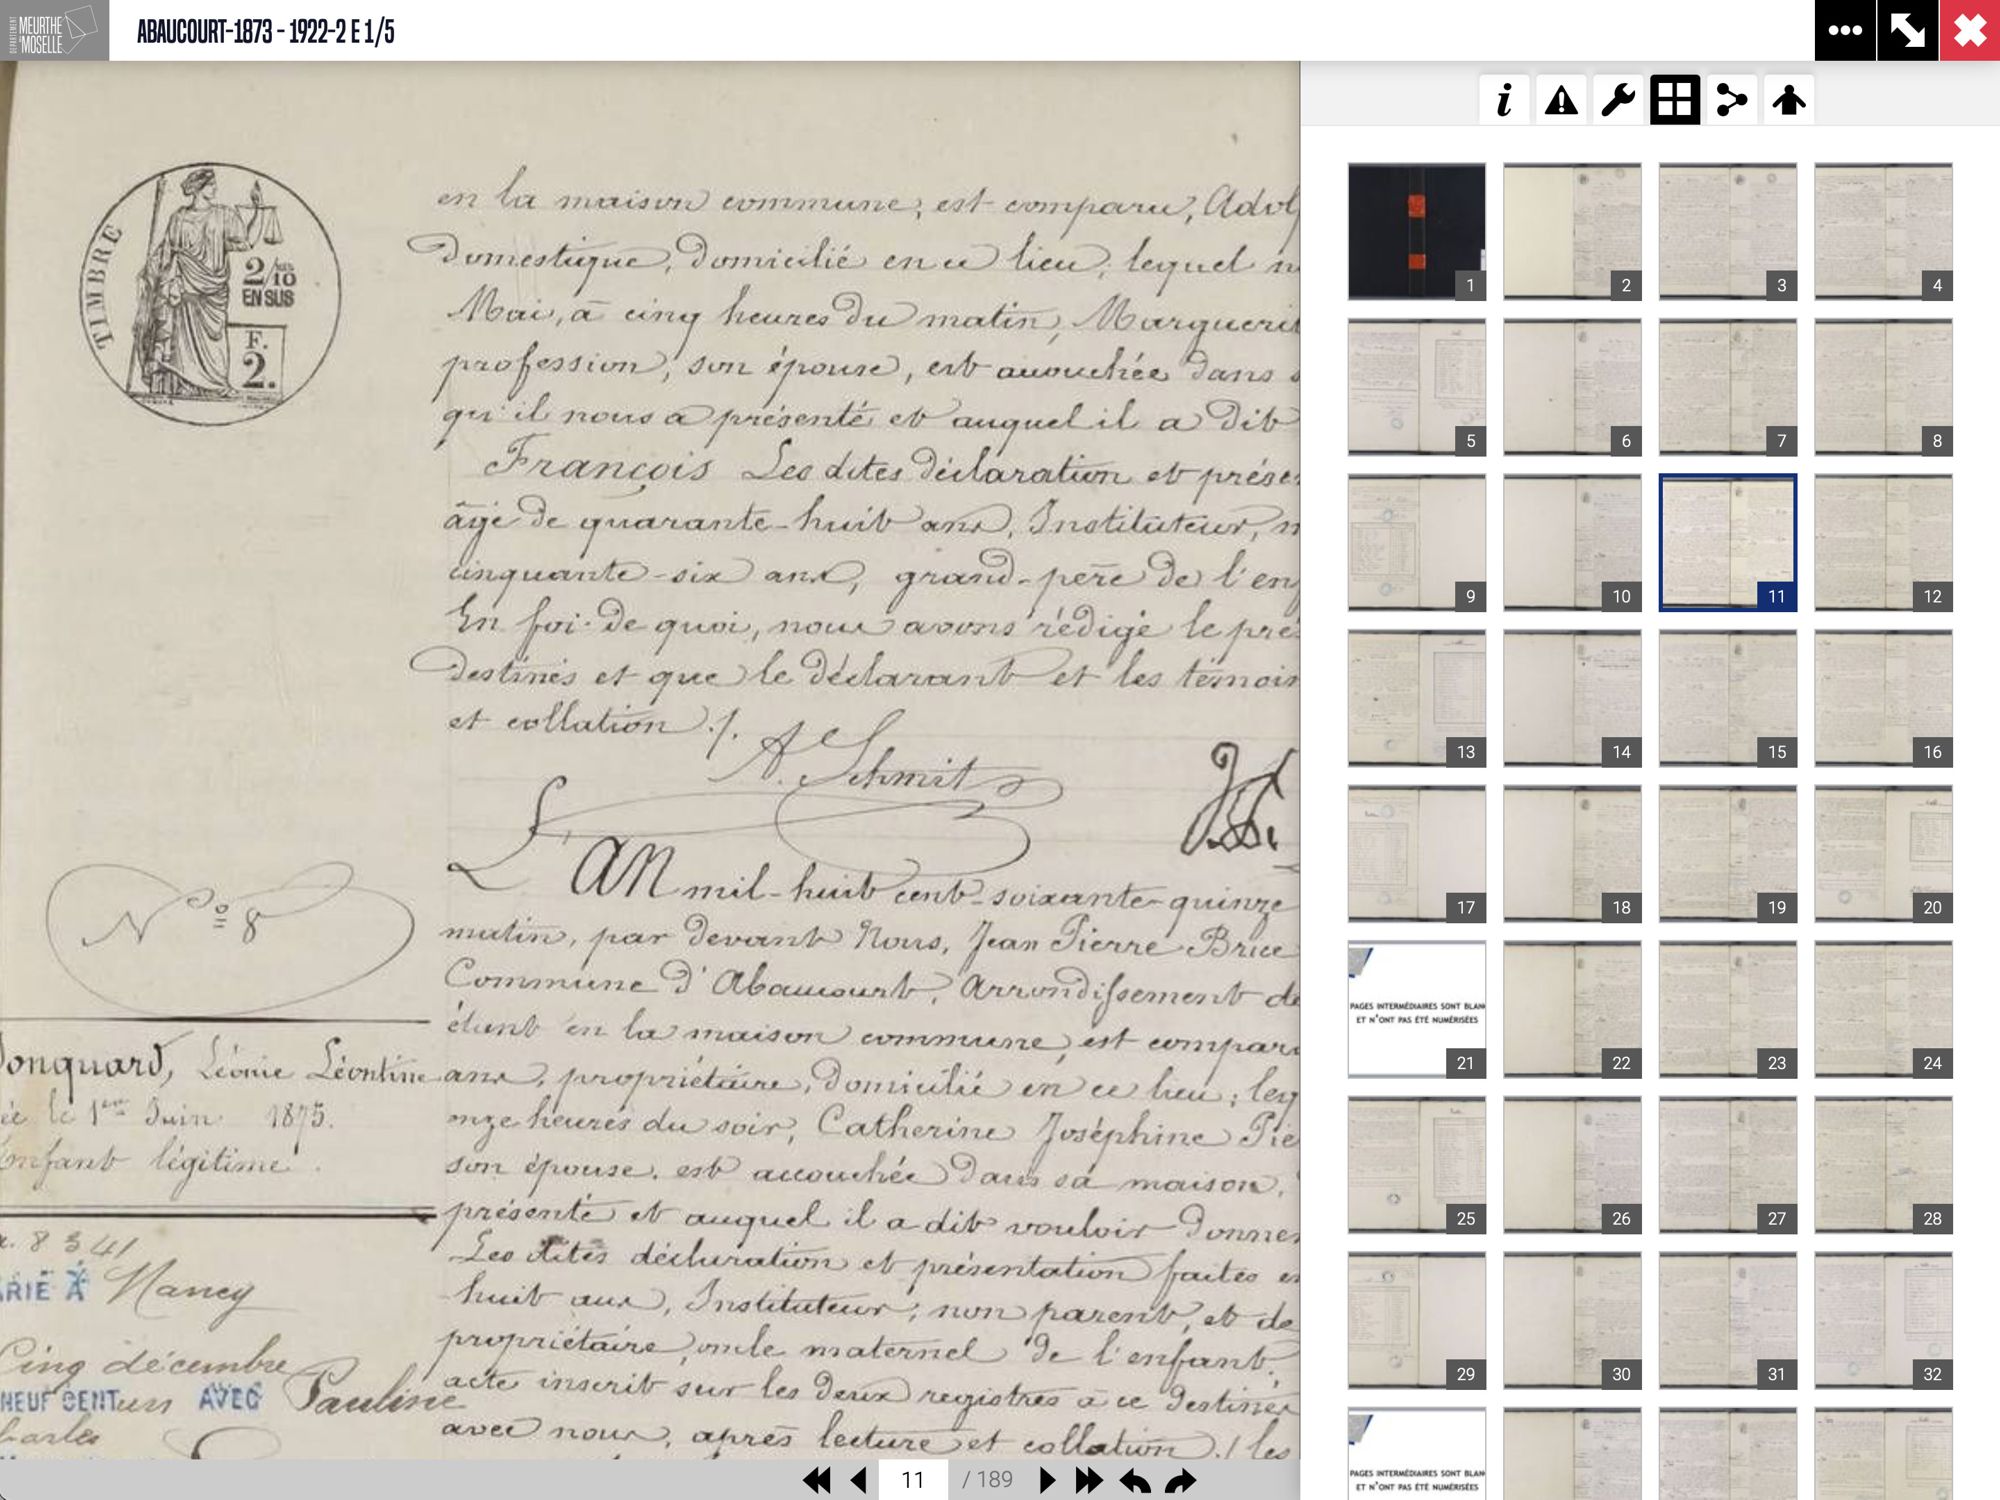 DEPARTEMENT MEURTHE & MOSELLE
ABAUCOURT-1873 - 1922-2 E 1/5
TIMBRE
2/10
EN SUS
F.
2.
en la maison commune, est comparu, Adol
Domestique, domicilié en ce lieu, lequel n
Mai, à cinq heures du matin, Marguerit
profession, son épouse, est accouchée dans s
qu'il nous a présenté et auquel il a dit
François Les dites déclaration et prése
âgé de quarante-huit ans, Instituteur, n
cinquante-six ans, grand-père de l'en
En foi de quoi, nous avons rédigé le pré
destinés et que le déclarant et les témoin
et collation ./.
A. Schmit
N° 8
L'AN mil-huit cent-soixante-quinze
matin, par devant Nous, Jean Pierre Brice
Commune d'Abaucourt, Arrondissement de
étant en la maison commune, est compar
ans, propriétaire, domicilié en ce lieu; leq
onze heures du soir, Catherine Joséphine Pie
son épouse, est accouchée dans sa maison,
présenté et auquel il a dit vouloir donner
Les dites déclaration et présentation faites e
huit ans, Instituteur, non parent, et de
propriétaire, oncle maternel de l'enfant.
acte inscrit sur les deux registres à ce destinés
avec nous, après lecture et collation ./. les
onquard, Léonie Léontine
ée le 1er Juin 1875.
Enfant légitime.
8341
ARIÉ À Nancy
Cinq décembre
NEUF CENT un AVEC Pauline
harles
11 / 189
1
2
3
4
5
6
7
8
9
10
11
12
13
14
15
16
17
18
19
20
PAGES INTERMÉDIAIRES SONT BLAN
ET N'ONT PAS ÉTÉ NUMÉRISÉES
21
22
23
24
25
26
27
28
29
30
31
32
PAGES INTERMÉDIAIRES SONT BLAN
ET N'ONT PAS ÉTÉ NUMÉRISÉES